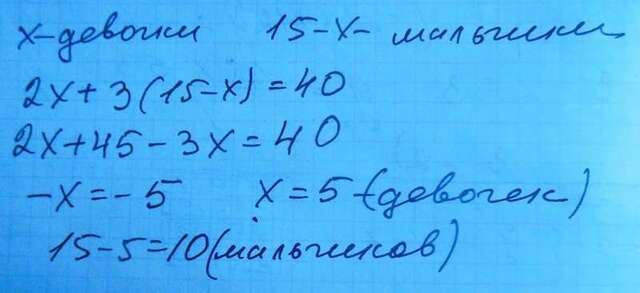 x-девочки 15-x- мальчики
2x+3(15-x)=40
2x+45-3x=40
-x=-5 x=5-(девочек)
15-5=10(мальчиков)